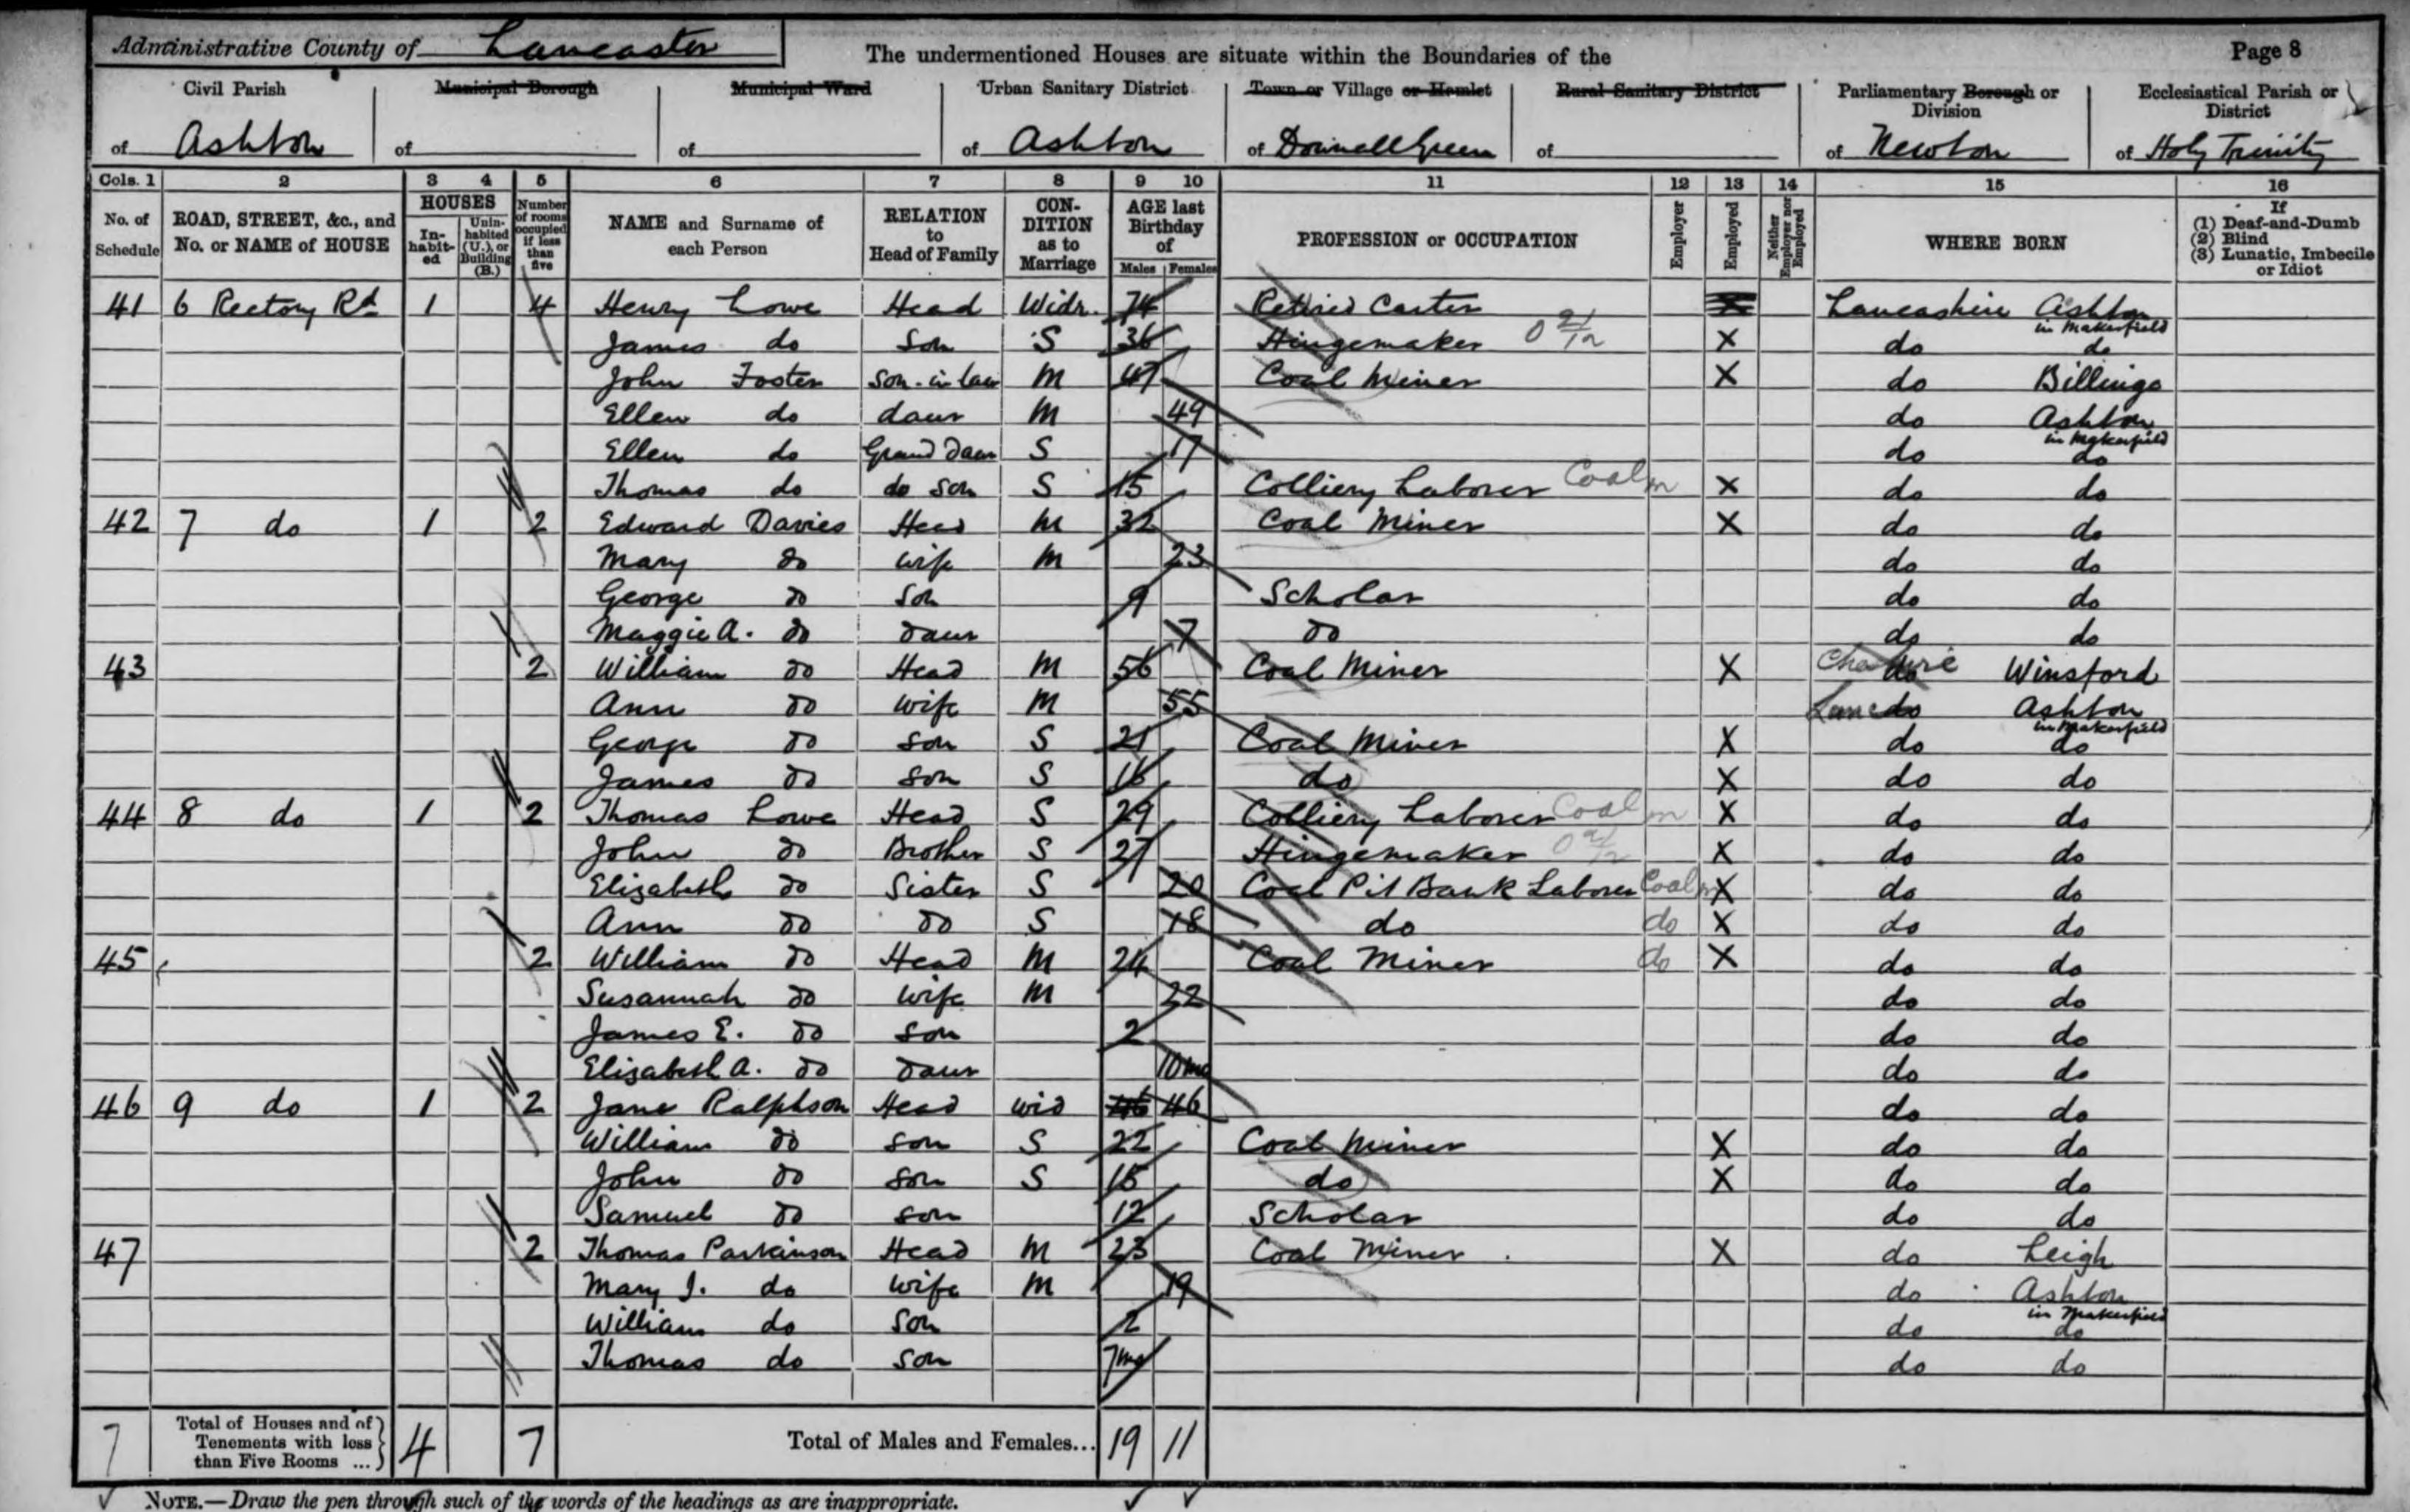 Administrative County of Lancaster The undermentioned Houses are situate within the Boundaries of the Page 8
Civil Parish Municipal Borough Municipal Ward Urban Sanitary District Town or Village or Hamlet Rural Sanitary District Parliamentary Borough or Division Ecclesiastical Parish or District
of Ashton of of of Ashton of Downall Green of of Newton of Holy Trinity
Cols. 1 2 3 4 5 6 7 8 9 10 11 12 13 14 15 16
No. of Schedule ROAD, STREET, &c., and No. or NAME of HOUSE HOUSES In-habit-ed Unin-habited (U.), or Building (B.) Number of rooms occupied if less than five NAME and Surname of each Person RELATION to Head of Family CON-DITION as to Marriage AGE last Birthday of Males Females PROFESSION or OCCUPATION Employer Employed Neither Employer nor Employed WHERE BORN If (1) Deaf-and-Dumb (2) Blind (3) Lunatic, Imbecile or Idiot
41 6 Rectory Rd 1 4 Henry Lowe Head Widr. 74 Retired Carter X Lancashire Ashton in Makerfield
James do Son S 36 Hingemaker X do do
John Foster Son-in-law M 47 Coal Miner X do Billinge
Ellen do daur M 49 do Ashton in Makerfield
Ellen do Grand Daur S 17 do do
Thomas do do son S 15 Colliery Laborer Coal m X do do
42 7 do 1 2 Edward Davies Head M 32 Coal Miner X do do
Mary do wife M 23 do do
George do Son 9 Scholar do do
Maggie A. do Daur 7 do do do
43 2 William do Head M 56 Coal Miner X do Cheshire Winsford
Ann do wife M 55 Lanc do Ashton in Makerfield
George do son S 21 Coal Miner X do do
James do son S 16 do X do do
44 8 do 1 2 Thomas Lowe Head S 29 Colliery Laborer Coal m X do do
John do Brother S 27 Hingemaker X do do
Elizabeth do Sister S 20 Coal Pit Bank Laborer Coal m X do do
Ann do do S 18 do do X do do
45 2 William do Head M 24 Coal Miner do X do do
Susannah do wife M 22 do do
James E. do son 2 do do
Elizabeth A. do Daur 10mo do do
46 9 do 1 2 Jane Ralphson Head wid 46 46 do do
William do son S 22 Coal Miner X do do
John do son S 15 do X do do
Samuel do son 12 Scholar do do
47 2 Thomas Parkinson Head M 23 Coal Miner X do Leigh
Mary J. do wife M 19 do Ashton in Makerfield
William do Son 2 do do
Thomas do Son 7mo do do
7 Total of Houses and of Tenements with less than Five Rooms ... 4 7 Total of Males and Females... 19 11
NOTE.—Draw the pen through such of the words of the headings as are inappropriate.